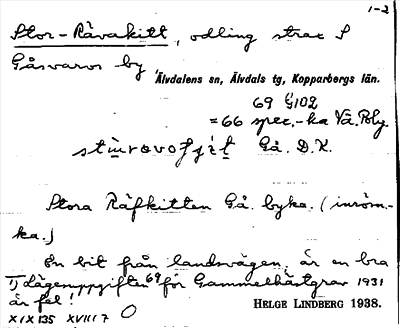 1-2
Stor-Rävakitt, odling strax S
Gåsvarvs by,
Älvdalens sn, Älvdals tg, Kopparbergs län.
69 G102
=66 spec.-ka Vä. Poly.
Gå. D. K.
Stora Räfkitten Gå. byka. (inröm.-
ka.)
En bit från landsvägen, är en bra
1) Lägenuppgiften 69 för Gammelhästgrav 1931
är fel!
HELGE LINDBERG 1938.
XIX135 XVIII7 O